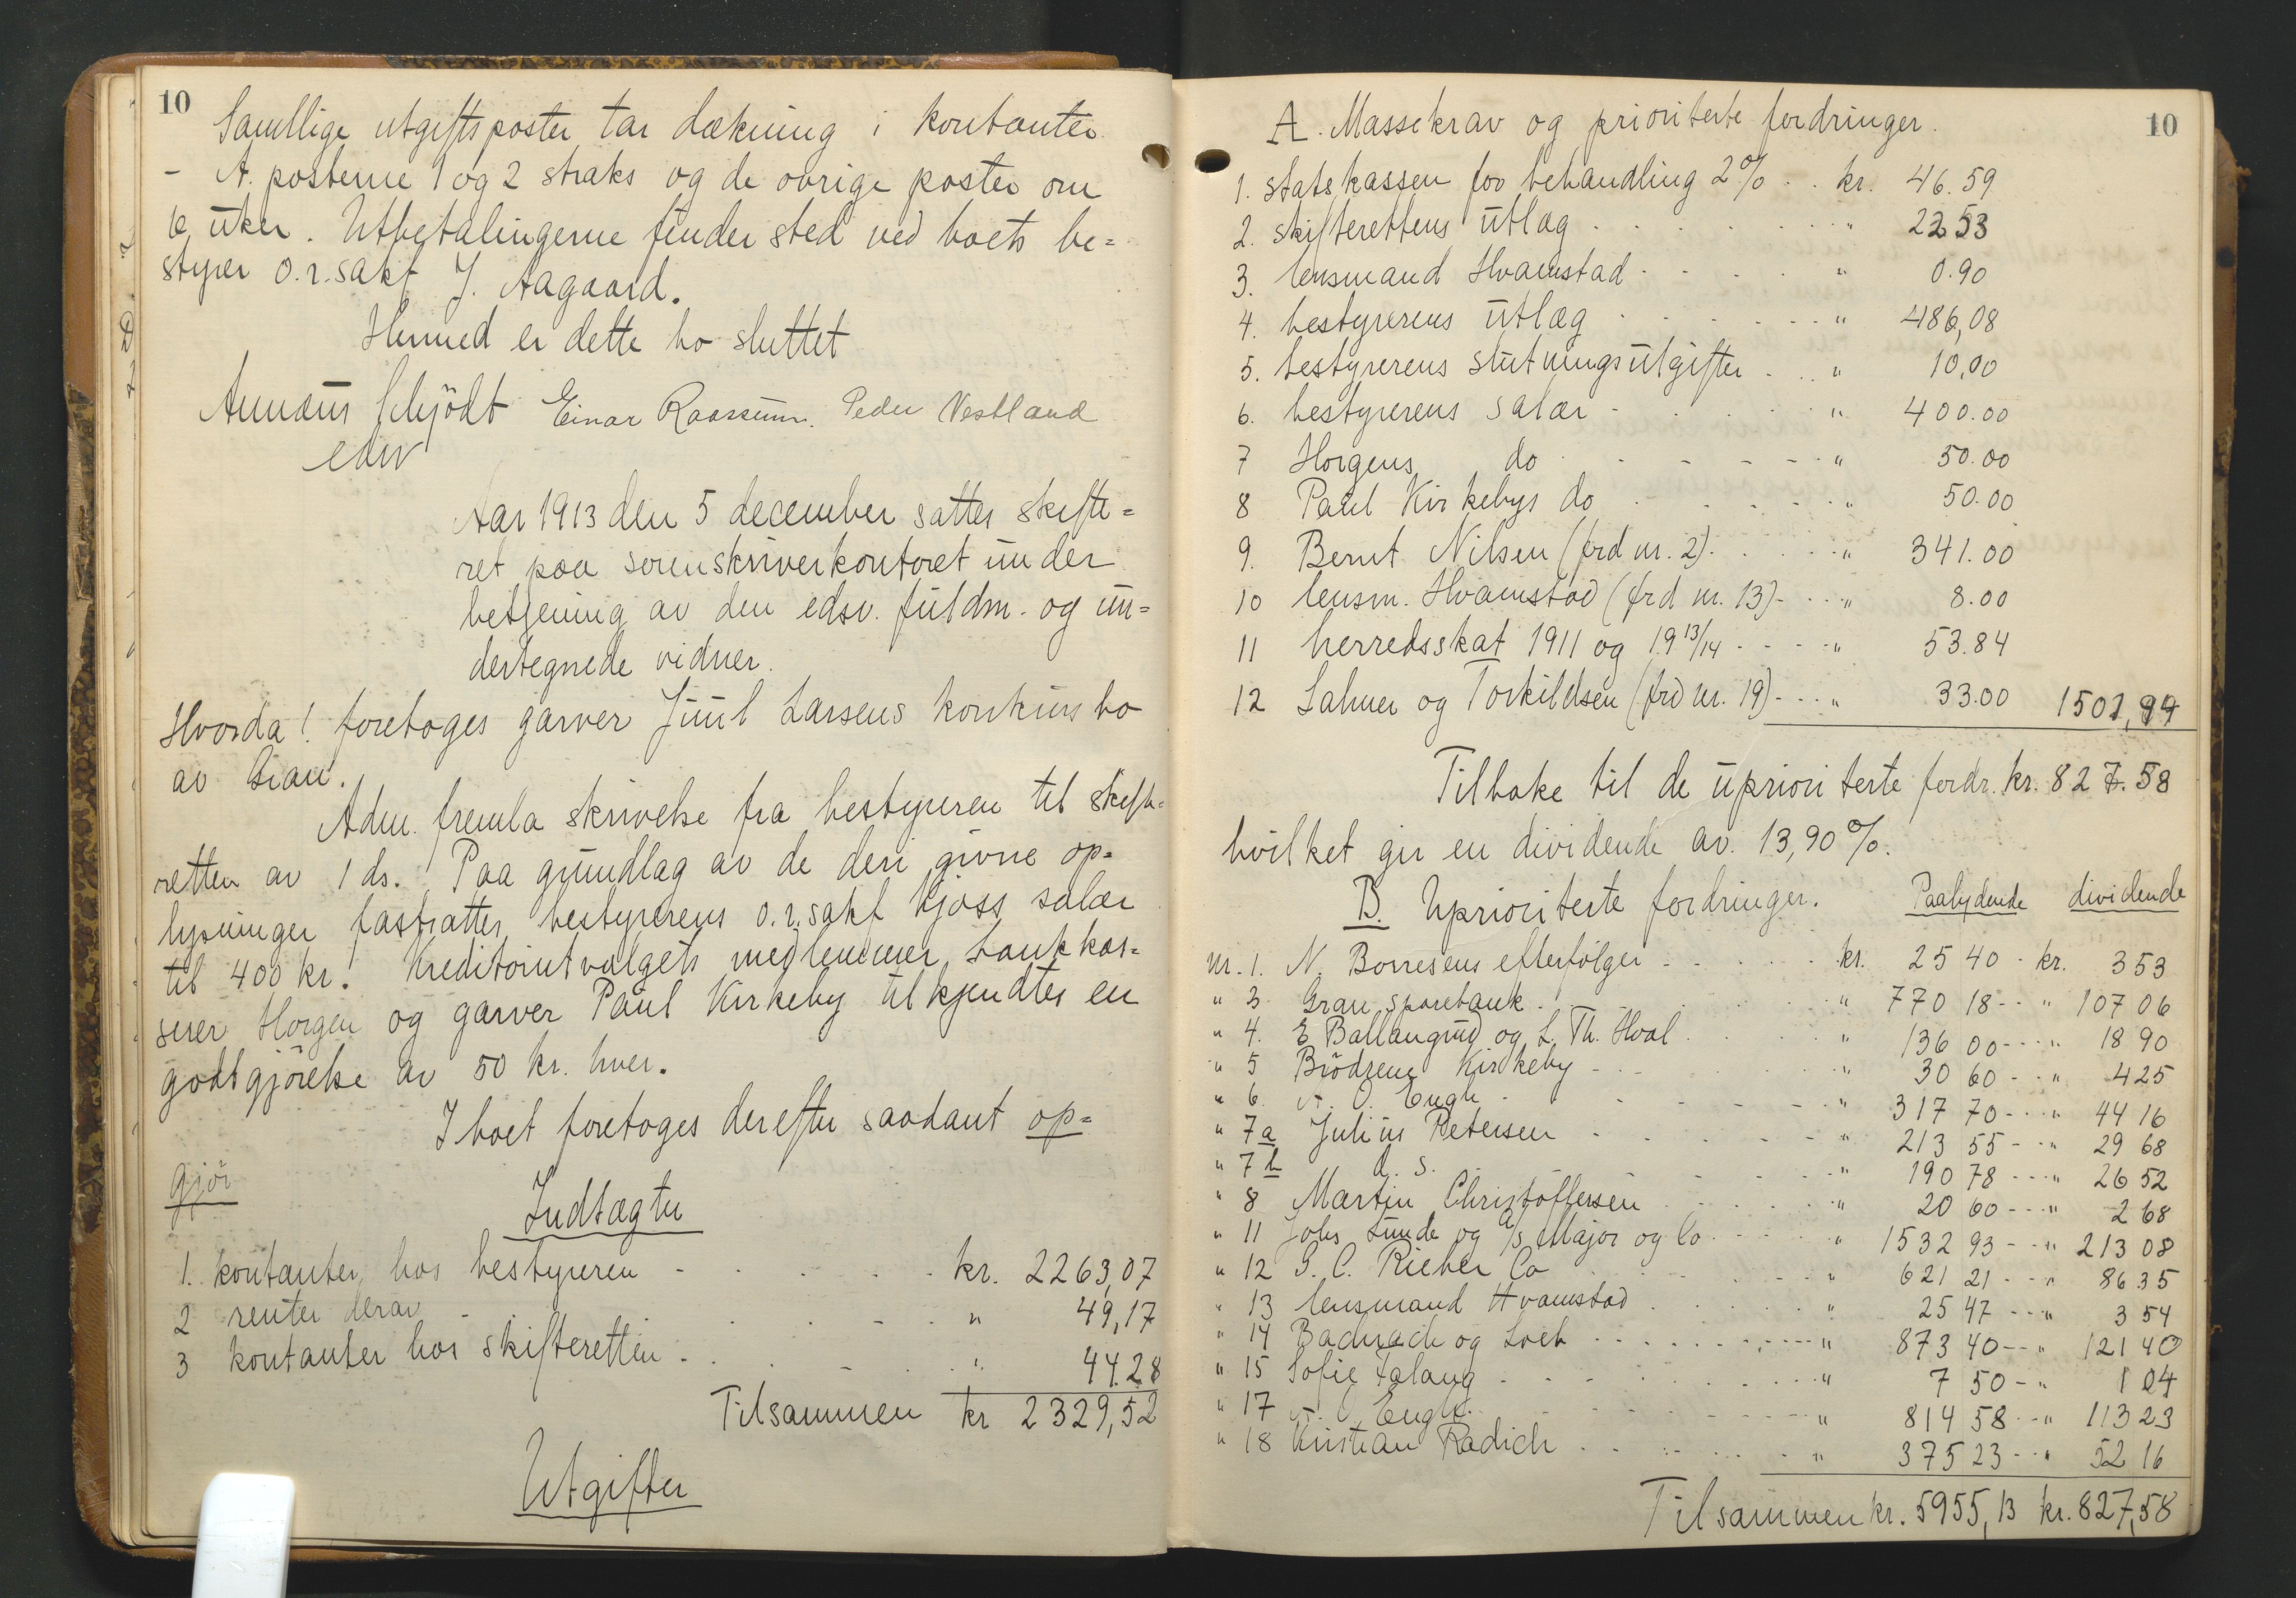 10
Samtlige utgiftsposter tar dækning i kontanter
- A. posterne 1 og 2 straks og de øvrige poster om
6 uker. Utbetalingerne finder sted ved boets be=
styrer o.r.sakf J. Aagaard.
Hermed er dette bo sluttet
Annæus Schjödt Einar Raassum. Peder Vestland
edsv
Aar 1913 den 5 december sattes skifte=
ret paa sorenskriverkontoret under
betjening av den edsv. fuldm. og un=
dertegnede vidner.
Hvorda! foretoges garver Juul Larsens konkursbo
av Gran.
Adm. fremla skrivelse fra bestyreren til skifte=
retten av 1 ds. Paa grundlag av de deri givne op=
lysninger fastsattes bestyrerens o.r.sakf Kjoss salær
til 400 kr. Kreditorutvalgets medlemmer, bankkas=
serer Horgen og garver Paul Kirkeby tilkjendtes en
godtgjörelse av 50 kr. hver.
I boet foretoges derefter saadant op=
gjör
Indtægter
1. kontanter hos bestyreren - . . . . . kr. 2263,07
2 renter derav - . . . - . " 49,17
3 kontanter hos skifteretten . . . - . . " 44.28
Tilsammen kr 2329,52
Utgifter
10
A. Massekrav og prioriterte fordringer.
1. statskassen for behandling 2% . . kr. 46.59
2. skifterettens utlæg . . . . . . " 22 53
3. lensmand Hvamstad . . . . " 0.90
4. bestyrerens utlæg . . . . . . " 486,08
5. bestyrerens slutningsutgifter . . . " 10,00
6. bestyrerens salær - . . . . . " 400.00
7 Horgens do . - - - - " 50.00
8 Paul Kirkebys do . - - - . " 50.00
9. Bernt Nilsen (frd nr. 2) . . . . " 341.00
10 lensm. Hvamstad (frd nr. 13) - . . " 8.00
11 herredsskat 1911 og 19 13/14 - - - - " 53.84
12 Salmer og Torkildsen (frd nr. 19) - . . " 33.00 1501,94
Tilbake til de uprioriterte fordr. kr. 827.58
hvilket gir en dividende av. 13,90 %.
B. Uprioriterte fordringer. Paalydende dividende
nr. 1. N. Borresens efterfölger - . . . . kr. 25 40 - kr. 3 53
" 3 Gran sparebank . . . . . " 770 18 - - " 107 06
" 4. E Ballangrud og L. Th. Hval . . . . " 136 00 - - - " 18 90
" 5 Brödrene Kirkeby - . . . . " 30 60 - - " 4 25
" 6. A. O. Engh - . . - - - " 317 70 - - - " 44 16
" 7a Julius Petersen . . . - - - " 213 55 - - " 29 68
" 7b d. s. . . . - - " 190 78 - - - " 26 52
" 8 Martin Christoffersen . . . . . " 20 60 - - - " 2 68
" 11 Johs Lunde og A/s Major og Co . . . . " 1532 93 - - " 213 08
" 12 G. C. Rieber Co . . . . . " 621 21 - - " 86 35
" 13 lensmand Hvamstad . . . . . " 25 47 - - - " 3 54
" 14 Bachrach og Loeb . . . . . . - - - " 873 40 - - " 121 40
" 15 Sofie Falang - . . . . . . . " 7 50 - " 1 04
" 17 A. O. Engh. . - - - - - - " 814 58 - - " 113 23
" 18 Kristian Radich . . . . . . " 375 23 - - " 52 16
Tilsammen kr. 5955,13 kr. 827,58